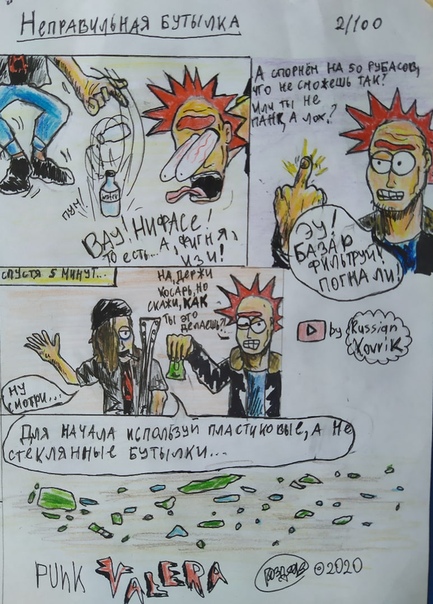 Неправильная бутылка
2/100
ПУМ!
ВАУ! НИФАСЕ!
ТО ЕСТЬ... А, ФИГНЯ,
ИЗИ!
А СПОРНЁМ НА 50 РУБАСОВ,
ЧТО НЕ СМОЖЕШЬ ТАК?
ИЛИ ТЫ НЕ
ПАНК, А ЛОХ?
ЭУ!
БАЗАР
ФИЛЬТРУЙ!
ПОГНАЛИ!
СПУСТЯ 5 МИНУТ...
НА, ДЕРЖИ
КОСАРЬ, НО
СКАЖИ, КАК
ТЫ ЭТО
ДЕЛАЕШЬ?!
НУ
СМОТРИ...
by Russian
Kovrik
Для начала используй пластиковые, а не
стеклянные бутылки...
PUNK VALERA
©2020